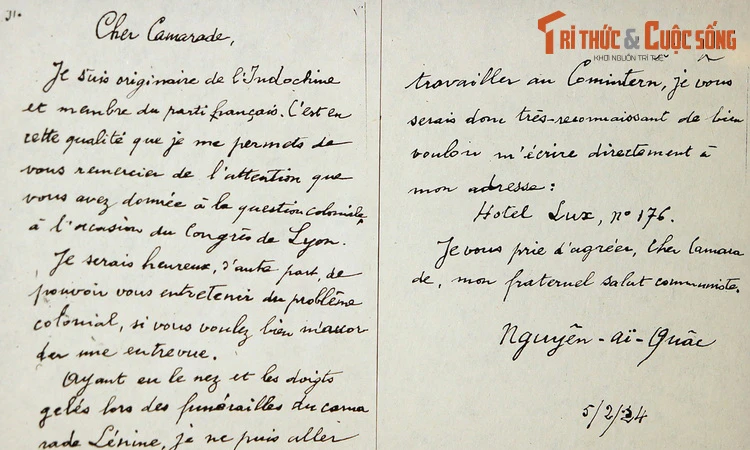 Cher Camarade,
Je suis originaire de l'Indochine
et membre du parti français. C'est en
cette qualité que je me permets de
vous remercier de l'attention que
vous avez donnée à la question coloniale,
à l'occasion du Congrès de Lyon.
Je serais heureux, d'autre part, de
pouvoir vous entretenir du problème
colonial, si vous voulez bien m'accor
der une entrevue.
Ayant eu le nez et les doigts
gelés lors des funérailles du cama
rade Lénine, je ne puis aller
TRI THỨC & CUỘC SỐNG
KHƠI NGUỒN TRI THỨC
travailler au Comintern, je vous
serais donc très-reconnaissant de bien
vouloir m'écrire directement à
mon adresse:
Hotel Lux, n° 176.
Je vous prie d'agréer, Cher Camara
de, mon fraternel salut communiste.
Nguyên-aï-Quâc
5/2/24